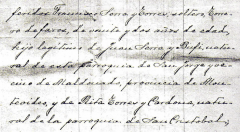 Francisco Sarra y Torres, soltero,
de faros, de veinte y dos años de edad,
hijo legítimo de Juan Sarra y natu-
ral de esta parroquia de San Jorge y ve-
cino de Maldonado, provincia de Mon-
tevideo, y de Rita Torres y Cardona, natu-
ral de la parroquia de San Cristobal;